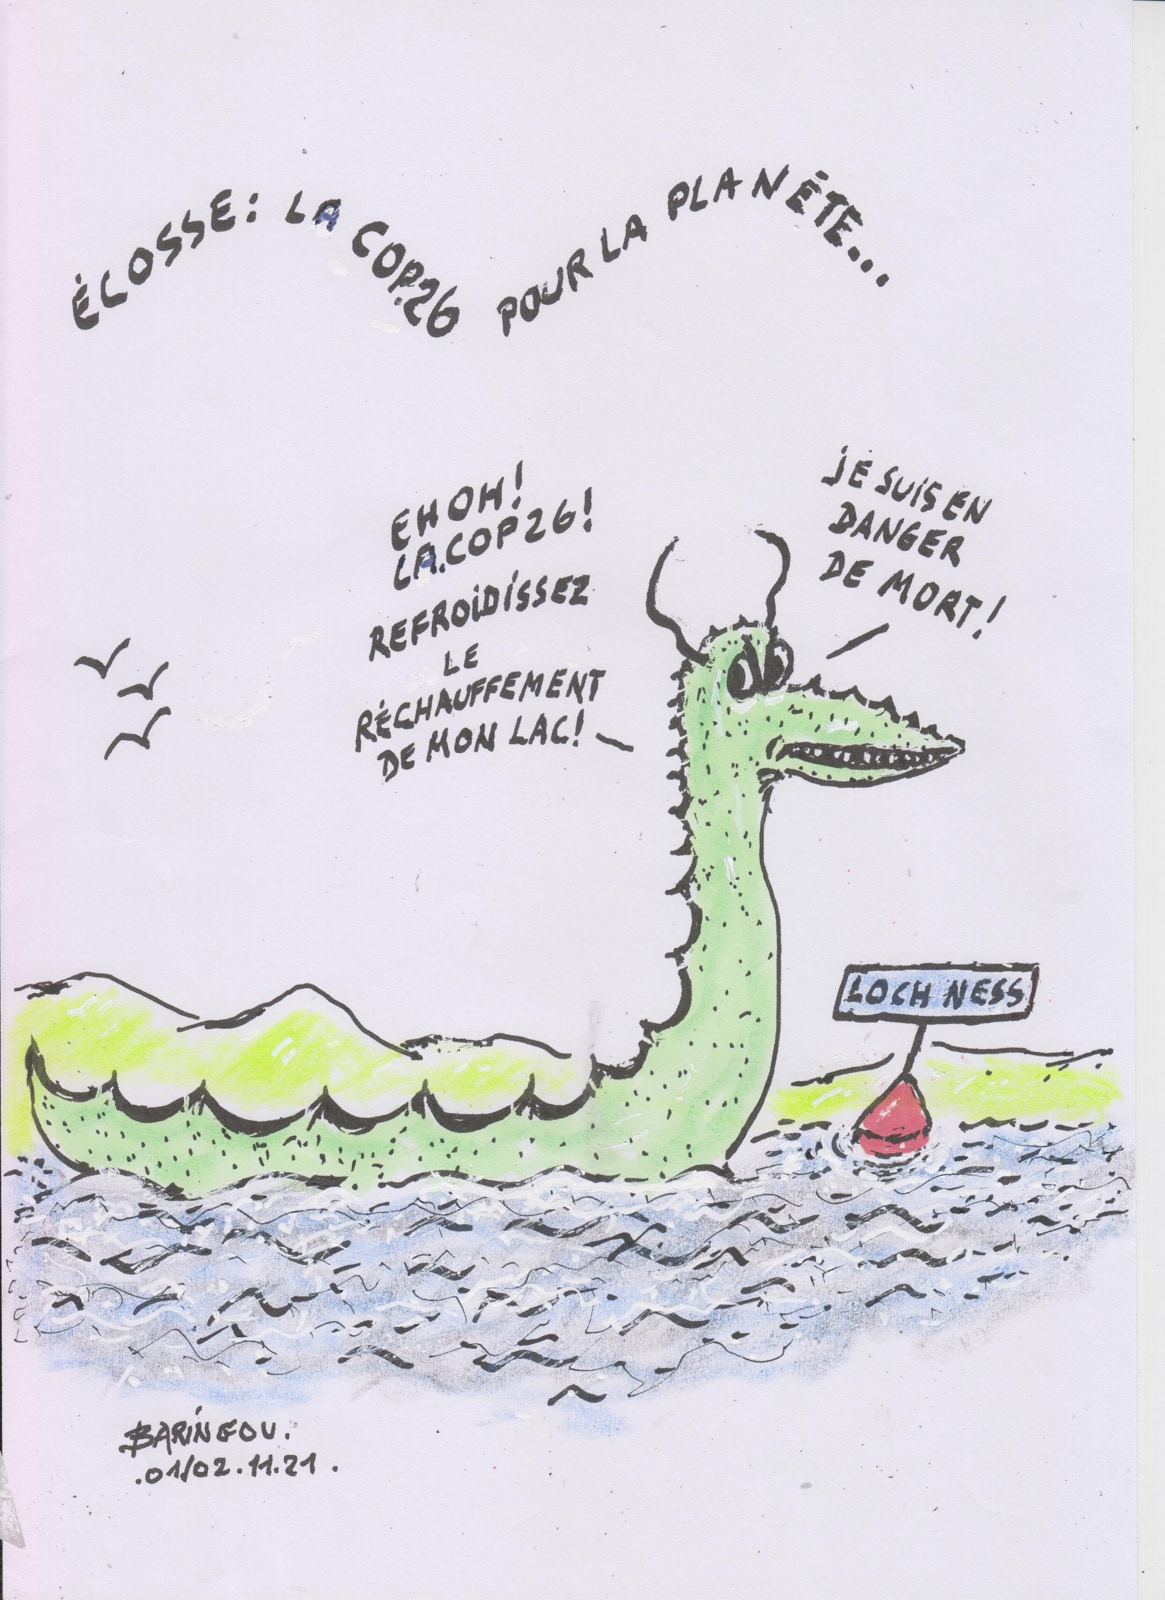 ÉCOSSE: LA COP.26 POUR LA PLANÈTE...
EH OH!
LA.COP26!
REFROIDISSEZ
LE
RÉCHAUFFEMENT
DE MON LAC!
JE SUIS EN
DANGER
DE MORT!
LOCH NESS
BARINGOU.
.01/02.11.21.